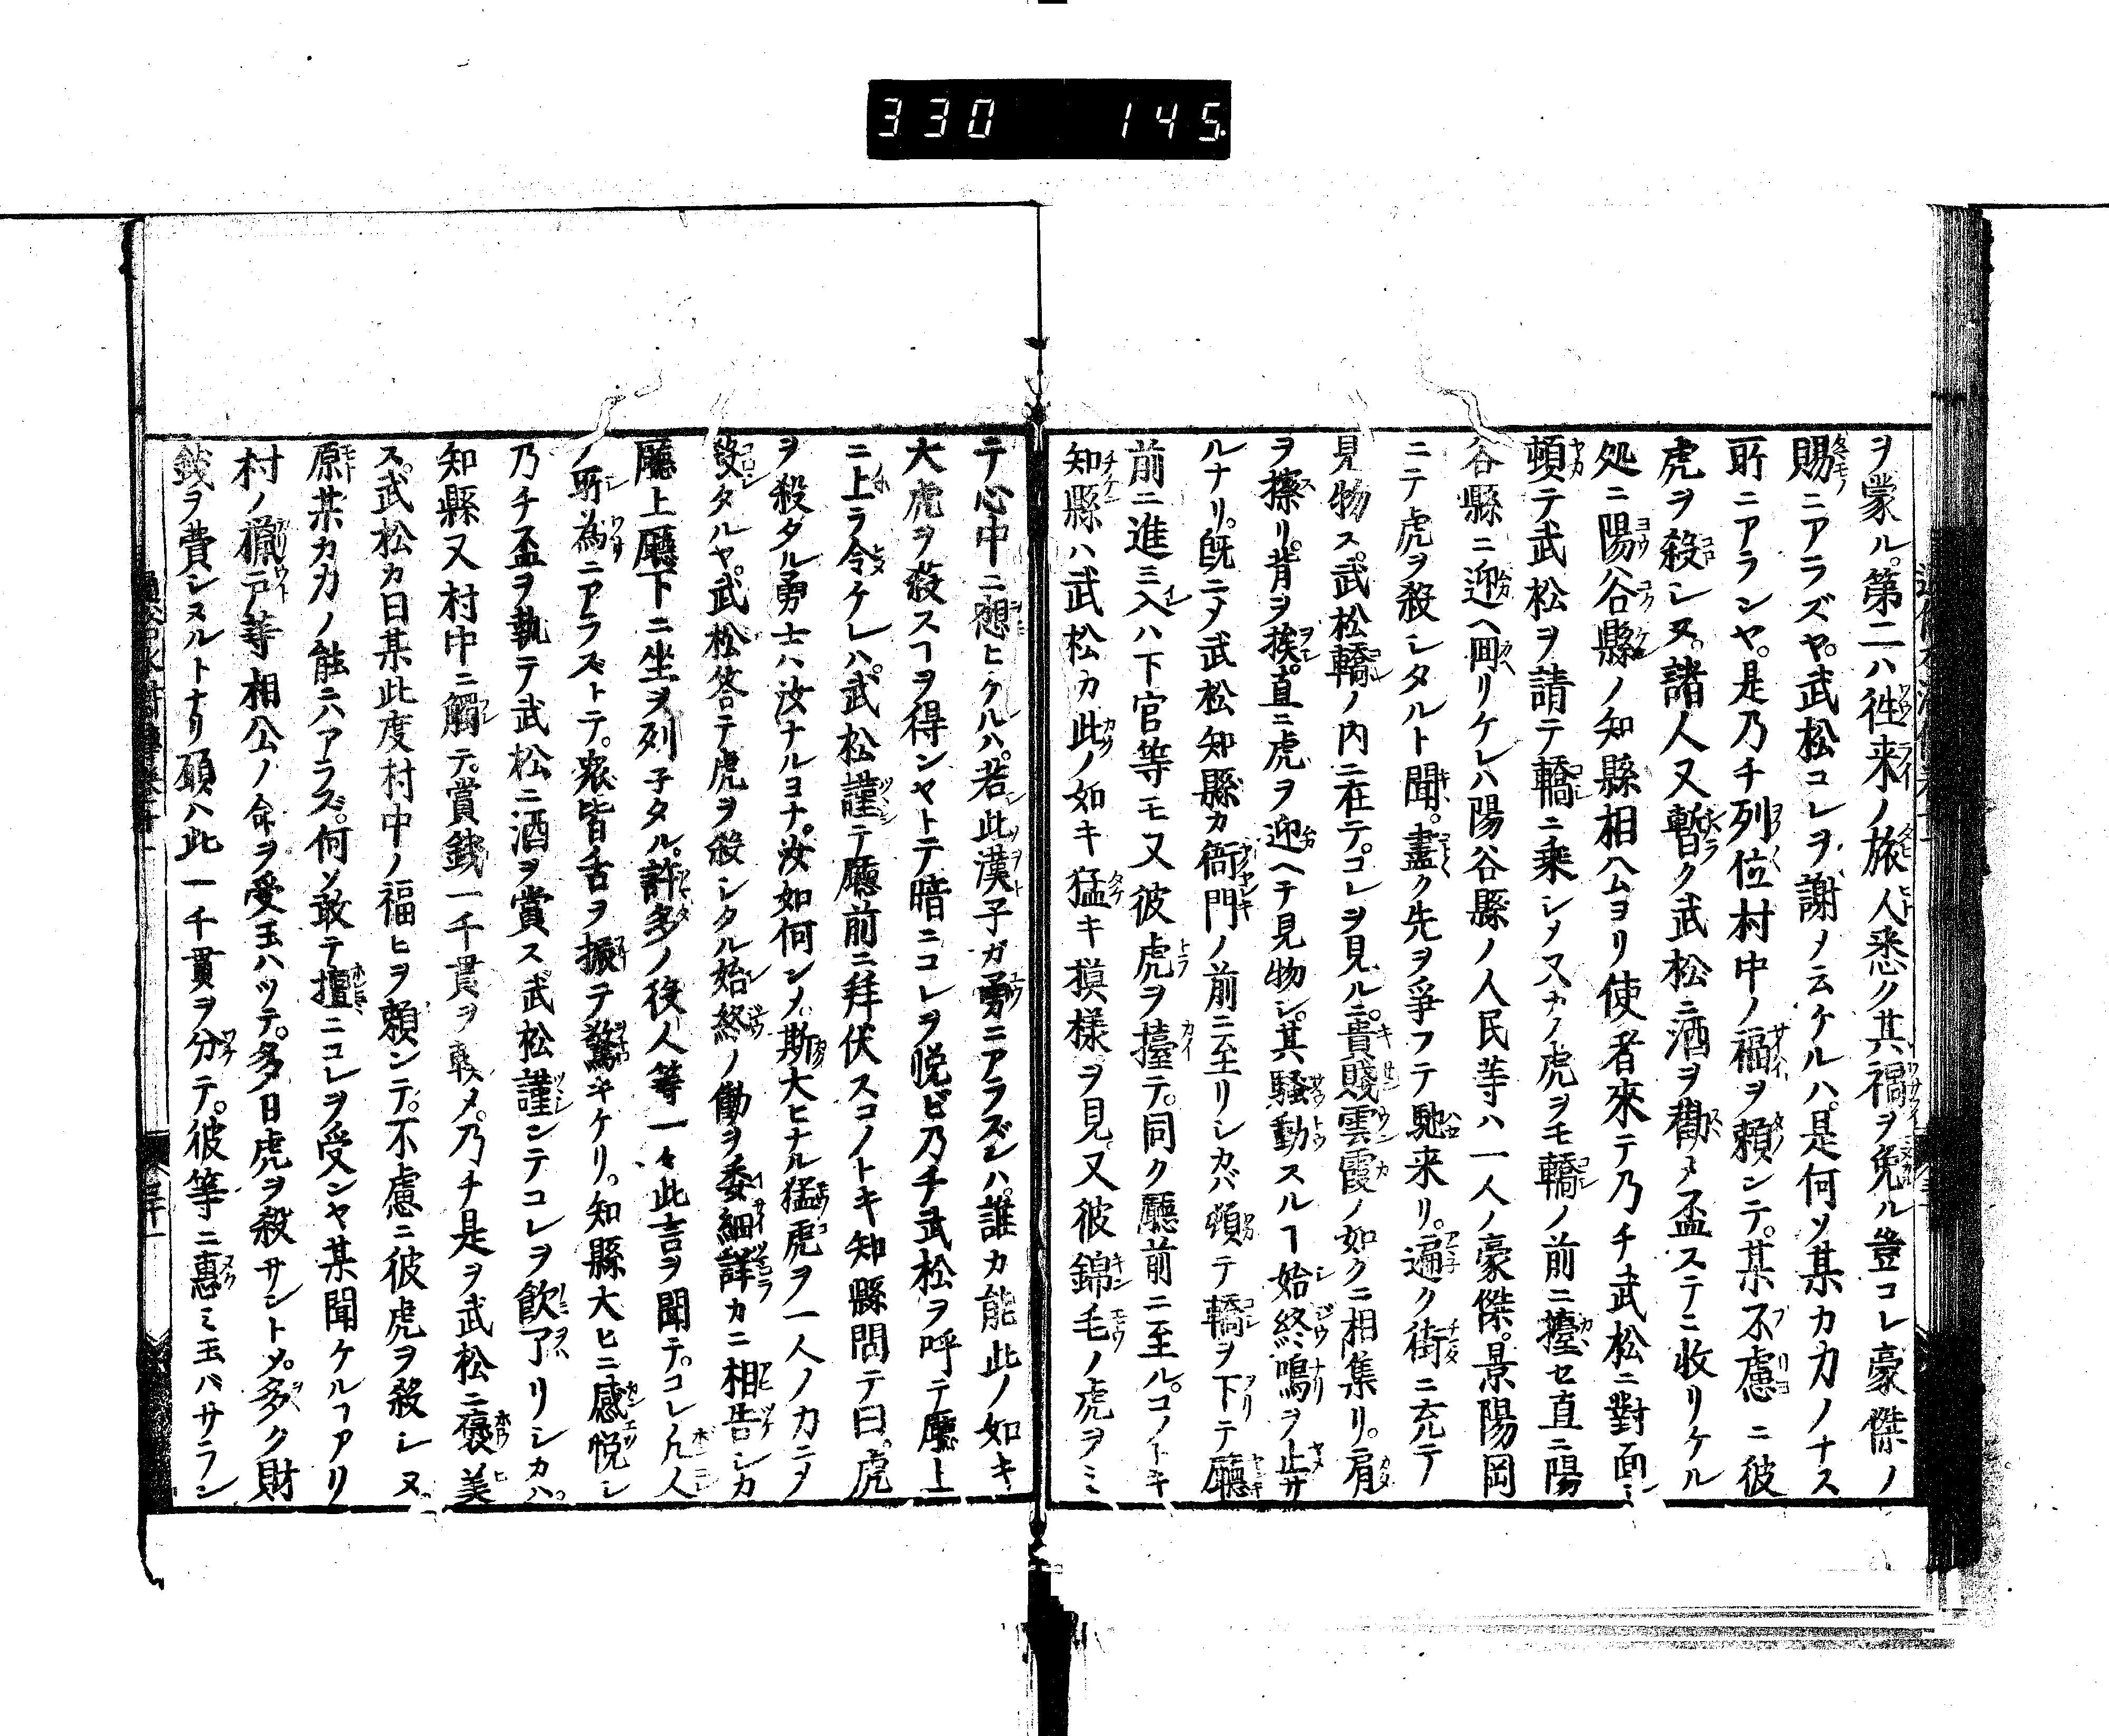 330 145
ヲ蒙ル。第二ハ徃来ノ旅人悉ク其禍ヲ免ル豈コレ豪傑ノ
賜ニアラズヤ。武松コレヲ謝メ云ケルハ。是何ソ某カ力ノナス
所ニアランヤ。是乃チ列位村中ノ福ヲ頼ンテ。某不慮ニ彼
虎ヲ殺シヌ。諸人又暫ク武松ニ酒ヲ勸メ盃ステニ收リケル
処ニ陽谷縣ノ知縣相公ヨリ使者來テ乃チ武松ニ對面シ
頓テ武松ヲ請テ轎ニ乗シメ又カノ虎ヲモ轎ノ前ニ擡セ直ニ陽
谷縣ニ迎ヘ囬リケレハ陽谷縣ノ人民等ハ一人ノ豪傑。景陽岡
ニテ虎ヲ殺シタルト聞。盡ク先ヲ爭フテ馳来リ。遍ク街ニ充テ
見物ス。武松轎ノ内ニ在テ。コレヲ見ルニ。貴賤雲霞ノ如クニ相集リ。肩
ヲ擦リ。背ヲ挨。直ニ虎ヲ迎ヘテ見物シ。其騒動スルヿ始終鳴ヲ止サ
ルナリ。既ニメ武松知縣カ衙門ノ前ニ至リシカバ頓テ轎ヲ下テ廳
前ニ進ミ入ハ下官等モ又彼虎ヲ擡テ。同ク廳前ニ至ル。コノトキ
知縣ハ武松カ此ノ如キ猛キ摸様ヲ見又彼錦毛ノ虎ヲミ
テ心中ニ想ヒケルハ。若此漢子ガ勇ニアラズンハ。誰カ能此ノ如キ
大虎ヲ殺スヿヲ得ンヤトテ暗ニコレヲ悦ビ乃チ武松ヲ呼テ廳上
ニ上ラ令ケレハ。武松謹テ廳前ニ拜伏スコノトキ知縣問テ曰。虎
ヲ殺タル勇士ハ汝ナルヨナ。汝如何ンメ。斯大ヒナル猛虎ヲ一人ノカニメ
殺タルヤ。武松答テ虎ヲ殺シタル始終ノ働ヲ委細詳カニ相告シカ
廳上廳下ニ坐ヲ列子タル。許多ノ役人等一々此言ヲ聞テ。コレ凡人
ノ所為ニアラズトテ。衆皆舌ヲ振テ驚キケリ。知縣大ヒニ感悦シ
乃チ盃ヲ執テ武松ニ酒ヲ賞ス武松謹ンテコレヲ飲了リシカハ
知縣又村中ニ觸テ。賞錢一千貫ヲ輳メ。乃チ是ヲ武松ニ褒美
ス。武松カ曰某此度村中ノ福ヒヲ頼ンテ。不慮ニ彼虎ヲ殺シヌ
原某カカノ能ニハアラズ。何ソ敢テ擅ニコレヲ受ンヤ某聞ケルヿアリ
村ノ猟戸等相公ノ命ヲ受玉ハッテ。多クノ日虎ヲ殺サントメ。多ク財
錢ヲ費シヌルトナリ願ハ此一千貫ヲ分テ。彼等ニ惠ミ玉ハサラン